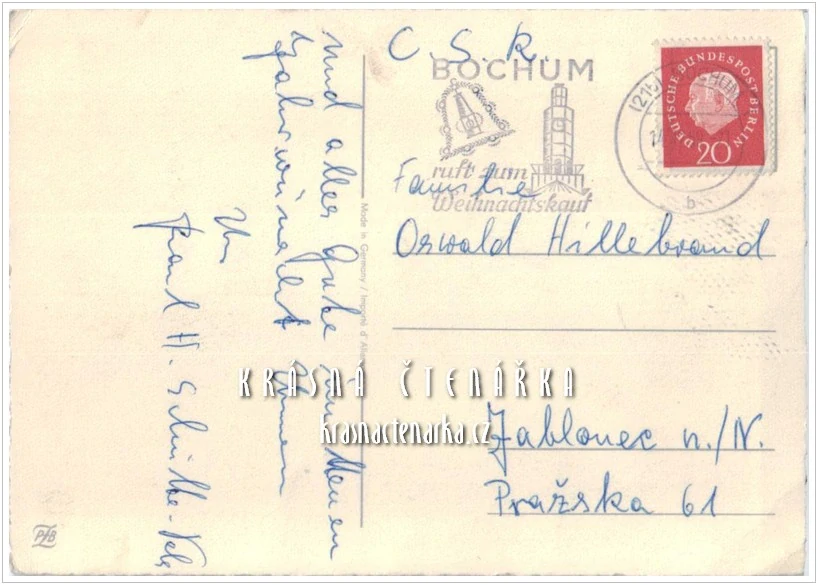 und alles Gute zum Neuen
Jahr wünscht Ihnen
Ihr
Paul H.
Made in Germany / Importé d'Allem
C. S. R.
BOCHUM
ruft zum
Weihnachtskauf
DEUTSCHE BUNDESPOST BERLIN
20
b
Familie
Oswald Hillebrand
KRÁSNÁ ČTENÁŘKA
krasnactenarka.cz
Jablonec n./N.
Pražska 61
PfB